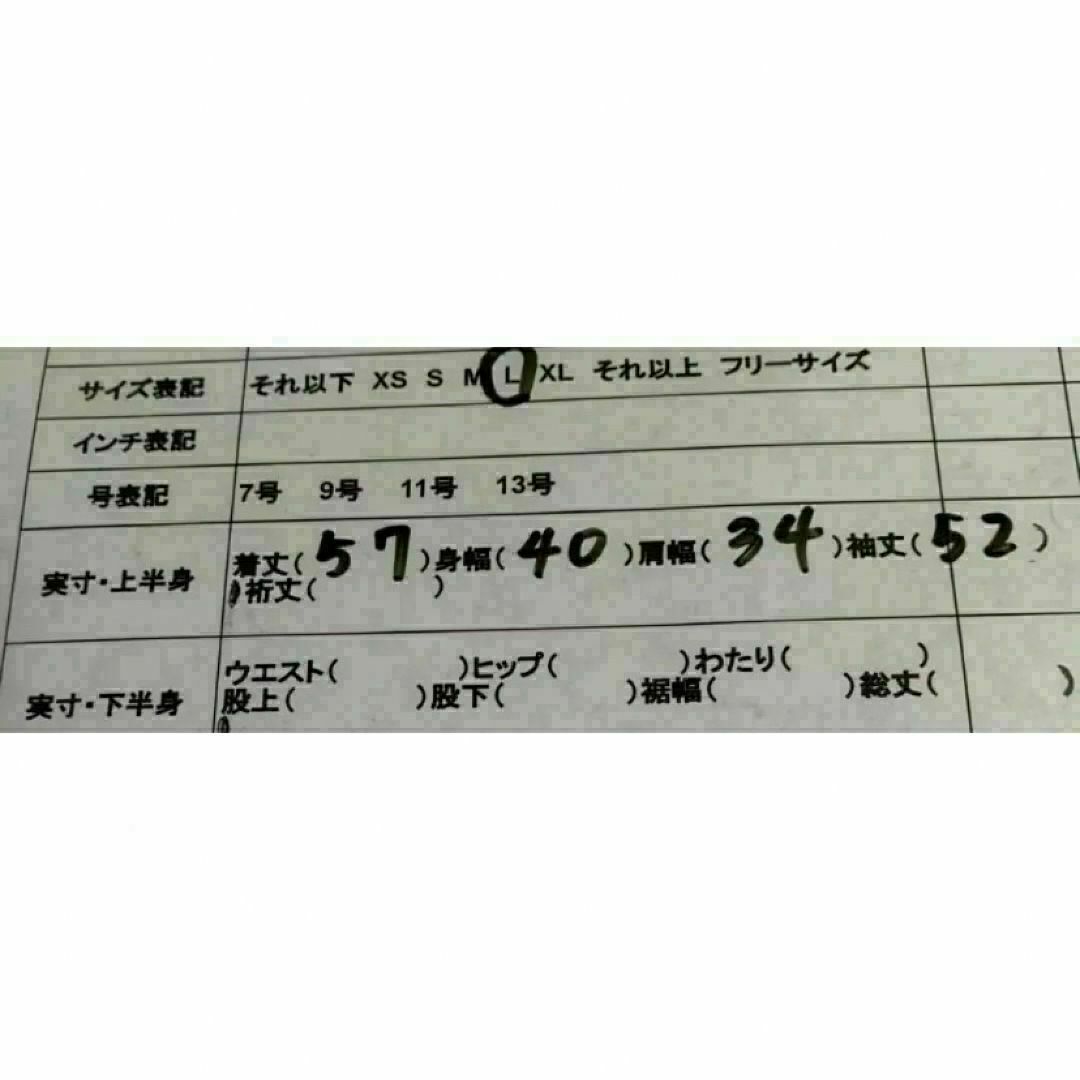 サイズ表記 それ以下 XS S M L XL それ以上 フリーサイズ
インチ表記
号表記 7号 9号 11号 13号
実寸・上半身 着丈(57)身幅(40)肩幅(34)袖丈(52)
裄丈( )
実寸・下半身 ウエスト( )ヒップ( )わたり( )
股上( )股下( )裾幅( )総丈( )